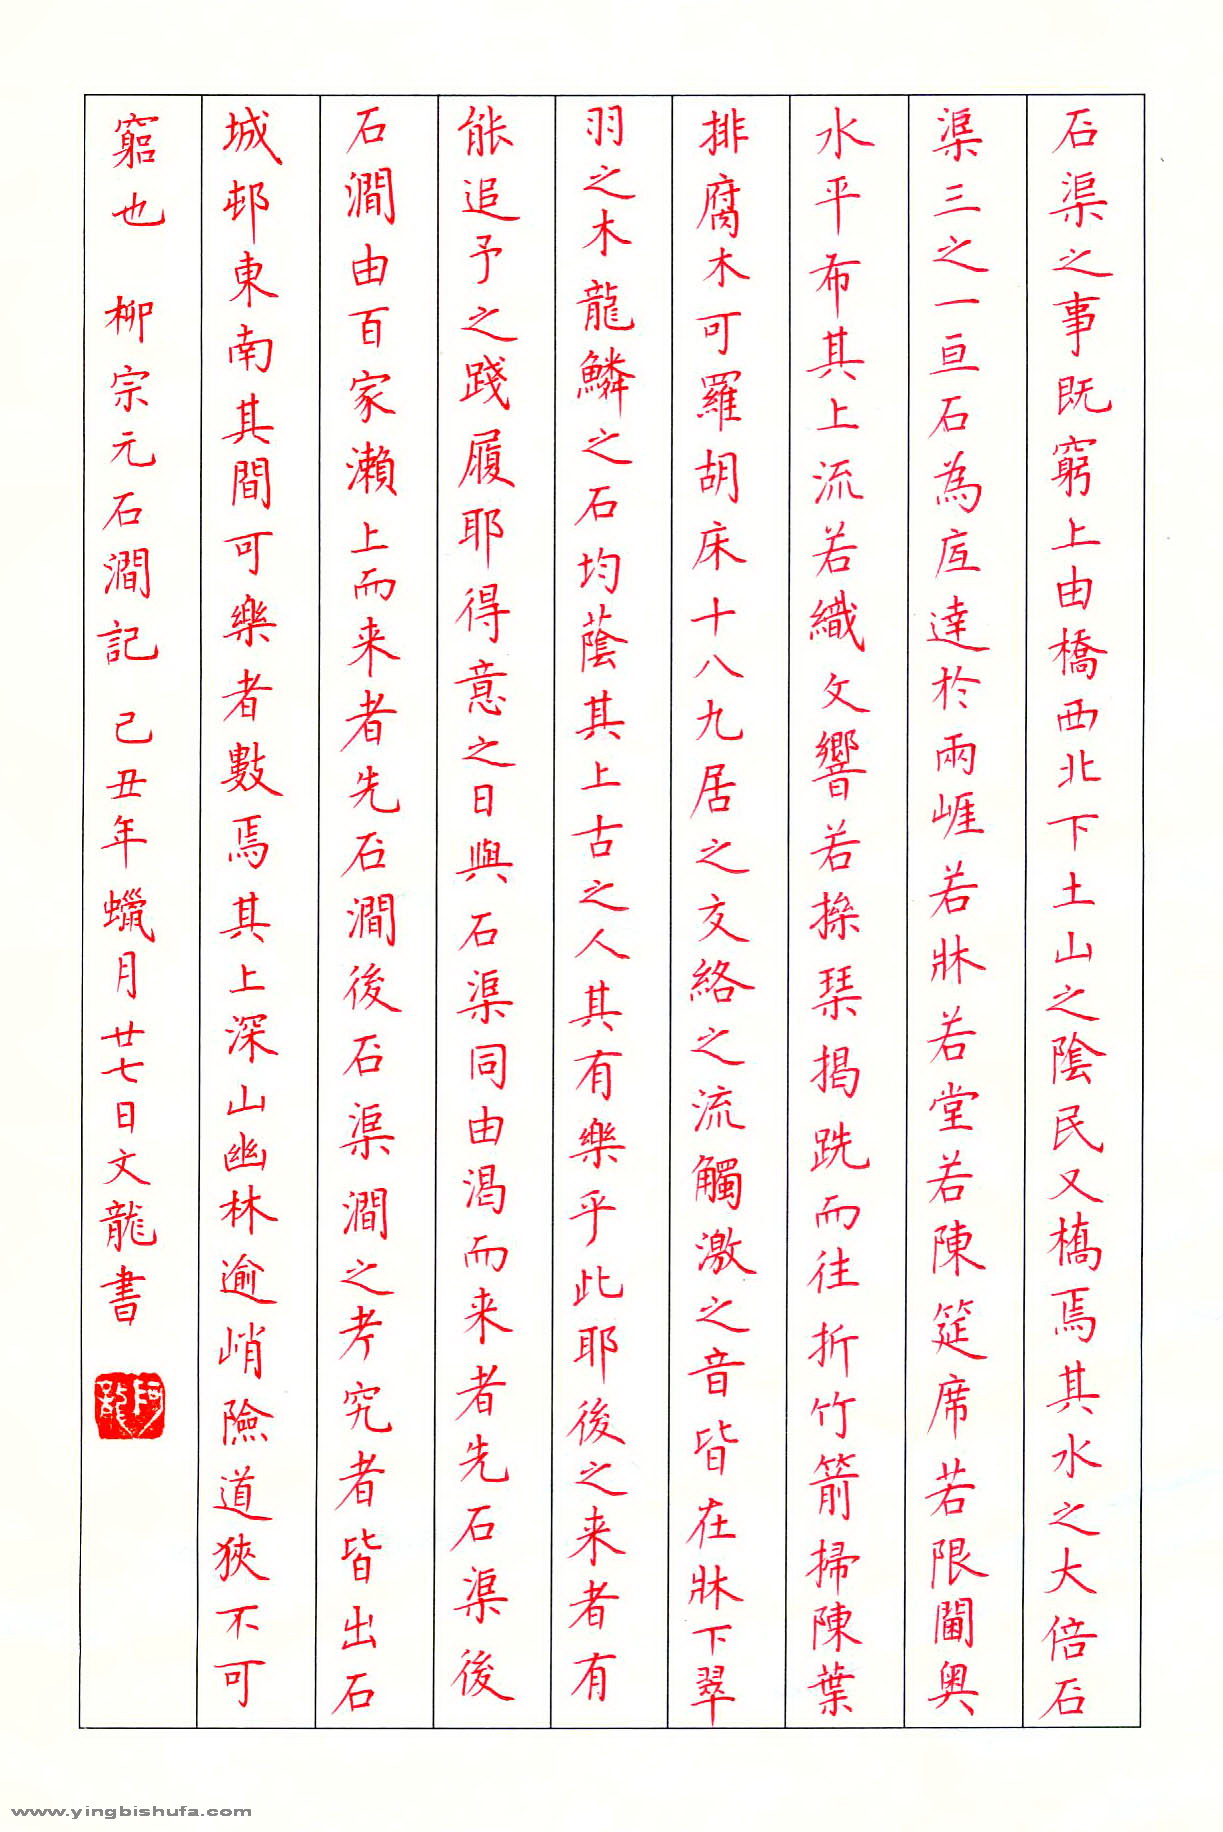 石渠之事既窮上由橋西北下土山之陰民又橋焉其水之大倍石
渠三之一亘石為底達於兩崖若牀若堂若陳筵席若限閫奧
水平布其上流若織文響若操琴揭跣而往折竹箭掃陳葉
排腐木可羅胡床十八九居之交絡之流觸激之音皆在牀下翠
羽之木龍鱗之石均蔭其上古之人其有樂乎此耶後之来者有
能追予之踐履耶得意之日與石渠同由渴而来者先石渠後
石澗由百家瀨上而来者先石澗後石渠澗之考究者皆出石
城邨東南其間可樂者數焉其上深山幽林逾峭險道狹不可
窮也 柳宗元石澗記 己丑年蠟月廿七日文龍書
阿龍
www.yingbishufa.com